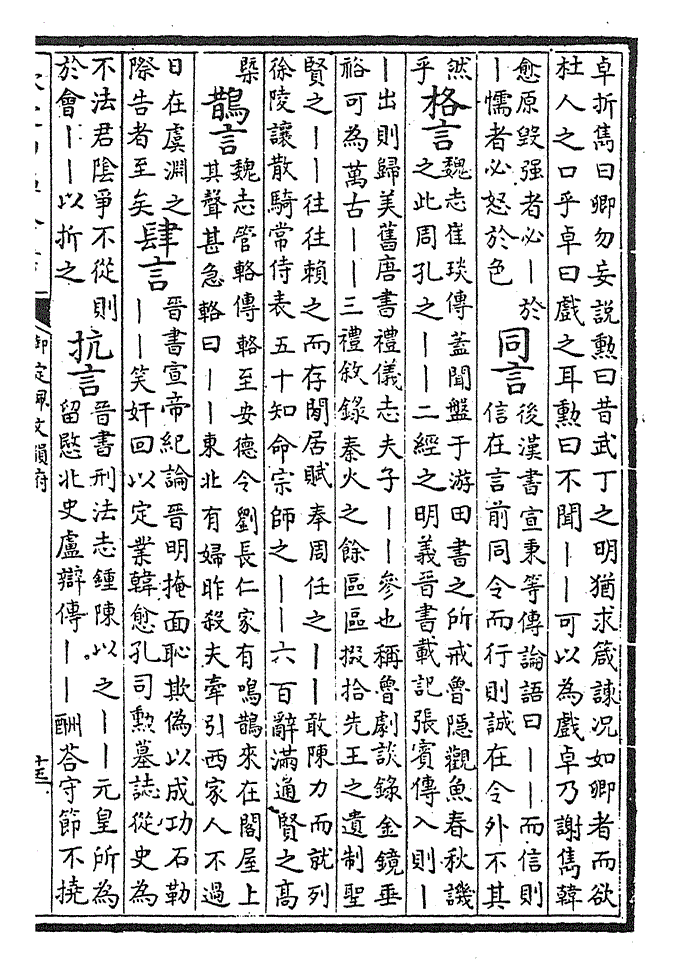 卓折雋曰卿勿妄説勲曰昔武丁之明猶求箴諫况如卿者而欲
杜人之口乎卓曰戲之耳勲曰不聞丨丨可以為戲卓乃謝雋韓
愈原毀强者必丨於
丨懦者必怒於色
同言
後漢書宣秉等傳論語曰丨丨而信則
信在言前同令而行則誠在令外不其
然
乎
格言
魏志崔琰傳蓋聞盤于游田書之所戒魯隱觀魚春秋譏
之此周孔之丨丨二經之明義晉書載記張賓傳入則丨
丨出則歸美舊唐書禮儀志夫子丨丨參也稱魯劇談錄金鏡垂
裕可為萬古丨丨三禮敘錄秦火之餘區區掇拾先王之遺制聖
賢之丨丨往往賴之而存閒居賦奉周任之丨丨敢陳力而就列
徐陵讓散騎常侍表五十知命宗師之丨丨六百辭滿通賢之高
槩
鵲言
魏志管輅傳輅至安德令劉長仁家有鳴鵲來在閣屋上
其聲甚急輅曰丨丨東北有婦昨殺夫牽引西家人不過
日在虞淵之
際告者至矣
肆言
晉書宣帝紀論晉明掩面恥欺偽以成功石勒
丨丨笑奸回以定業韓愈孔司勲墓誌從史為
不法君陰爭不從則
於會丨丨以折之
抗言
晉書刑法志鍾陳以之丨丨元皇所為
留愍北史盧辯傳丨丨酬荅守節不撓
御定佩文韻府